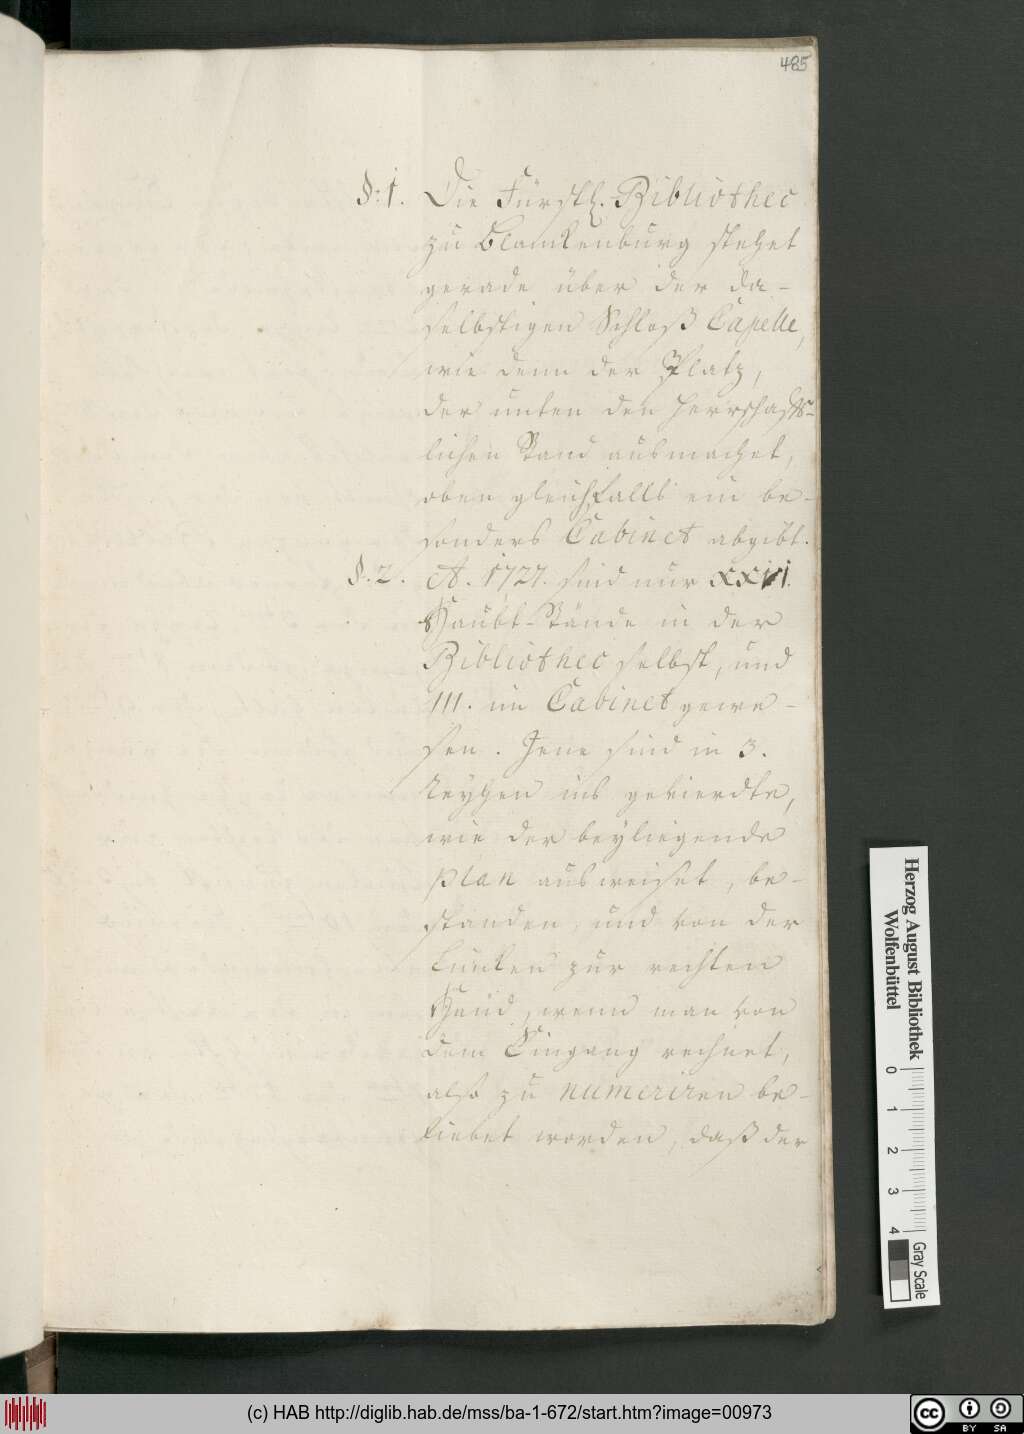 485
§: 1. Die Fürstl. Bibliothec
zu Blanckenburg stehet
gerade über der da-
selbstigen Schloß Capelle,
wie denn der Platz,
der unten den Herrschafft-
lichen Stand ausmachet,
oben gleichfalls ein be-
sonders Cabinet abgibt.
§. 2. A. 1727. sind nur XXVI.
Haubt-Stände in der
Bibliothec selbst, und
III. im Cabinet gewe-
sen. Jene sind in 3.
Reyhen ins gevierdte,
wie der beyliegende
plan ausweiset, be-
standen, und von der
Lincken zur rechten
Hand, wenn man von
dem Eingang rechnet,
also zu numeriren be-
liebet worden, daß der
Herzog August Bibliothek
Wolfenbüttel
0 1 2 3 4
Gray Scale
(c) HAB http://diglib.hab.de/mss/ba-1-672/start.htm?image=00973
cc BY SA